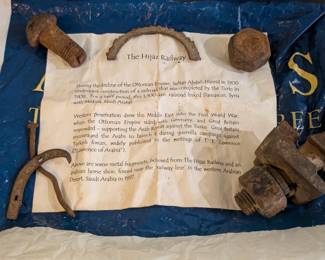 The Hijaz Railway
During the decline of the Ottoman Empire, Sultan Abdul-Hamid in 1900
continuous construction of a railroad that was completed by the Turks in
1908. For a brief period, this 1,300 km railroad linked Damascus, Syria
with Medina, Saudi Arabia.
Western Penetration drew the Middle East into the First World War,
when the Ottoman Empire sided with Germany, and Great Britain
responded - supporting the Arab Revolt against the Turks. Great Britain
encouraged the Arabs to launch daring guerrilla campaigns against
Turkish forces, widely published in the writings of T. E. Lawrence
("Lawrence of Arabia").
Above are some metal fragments, believed from The Hijaz Railway and an
Arabian horse shoe, found near the railway line in the western Arabian
Desert, Saudi Arabia in 1997.
S